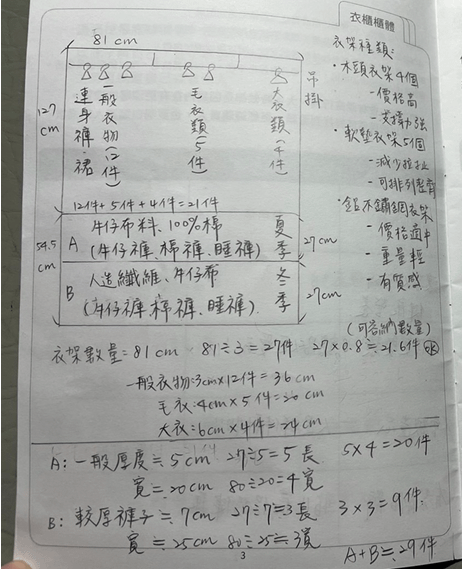 衣櫃櫃體
81 cm
127 cm
連身褲裙
一般衣物(12件)
毛衣類(5件)
大衣類(4件)
吊掛
12件+5件+4件=21件
54.5 cm
A
牛仔布料、100%棉
(牛仔褲、棉褲、睡褲)
夏季
27cm
B
人造纖維、牛仔布
(牛仔褲、棉褲、睡褲)
冬季
27cm
衣架種類:
・木頭衣架4個
-價格高
-支撐力強
・軟墊衣架5個
-減少拉扯
-可排列整齊
・鋁不鏽鋼衣架
-價格適中
-重量輕
-有質感
(可容納數量)
衣架數量=81cm 81÷3=27件 27×0.8≒21.6件 OK
一般衣物:3cm×12件=36cm
毛衣:4cm×5件=20cm
大衣:6cm×4件=24cm
A:一般厚度≒5cm 27÷5=5長 5×4=20件
寬=20cm 80÷20=4寬
B:較厚褲子≒7cm 27÷7≒3長 3×3=9件
寬≒25cm 80÷25≒3寬
A+B≒29件
3